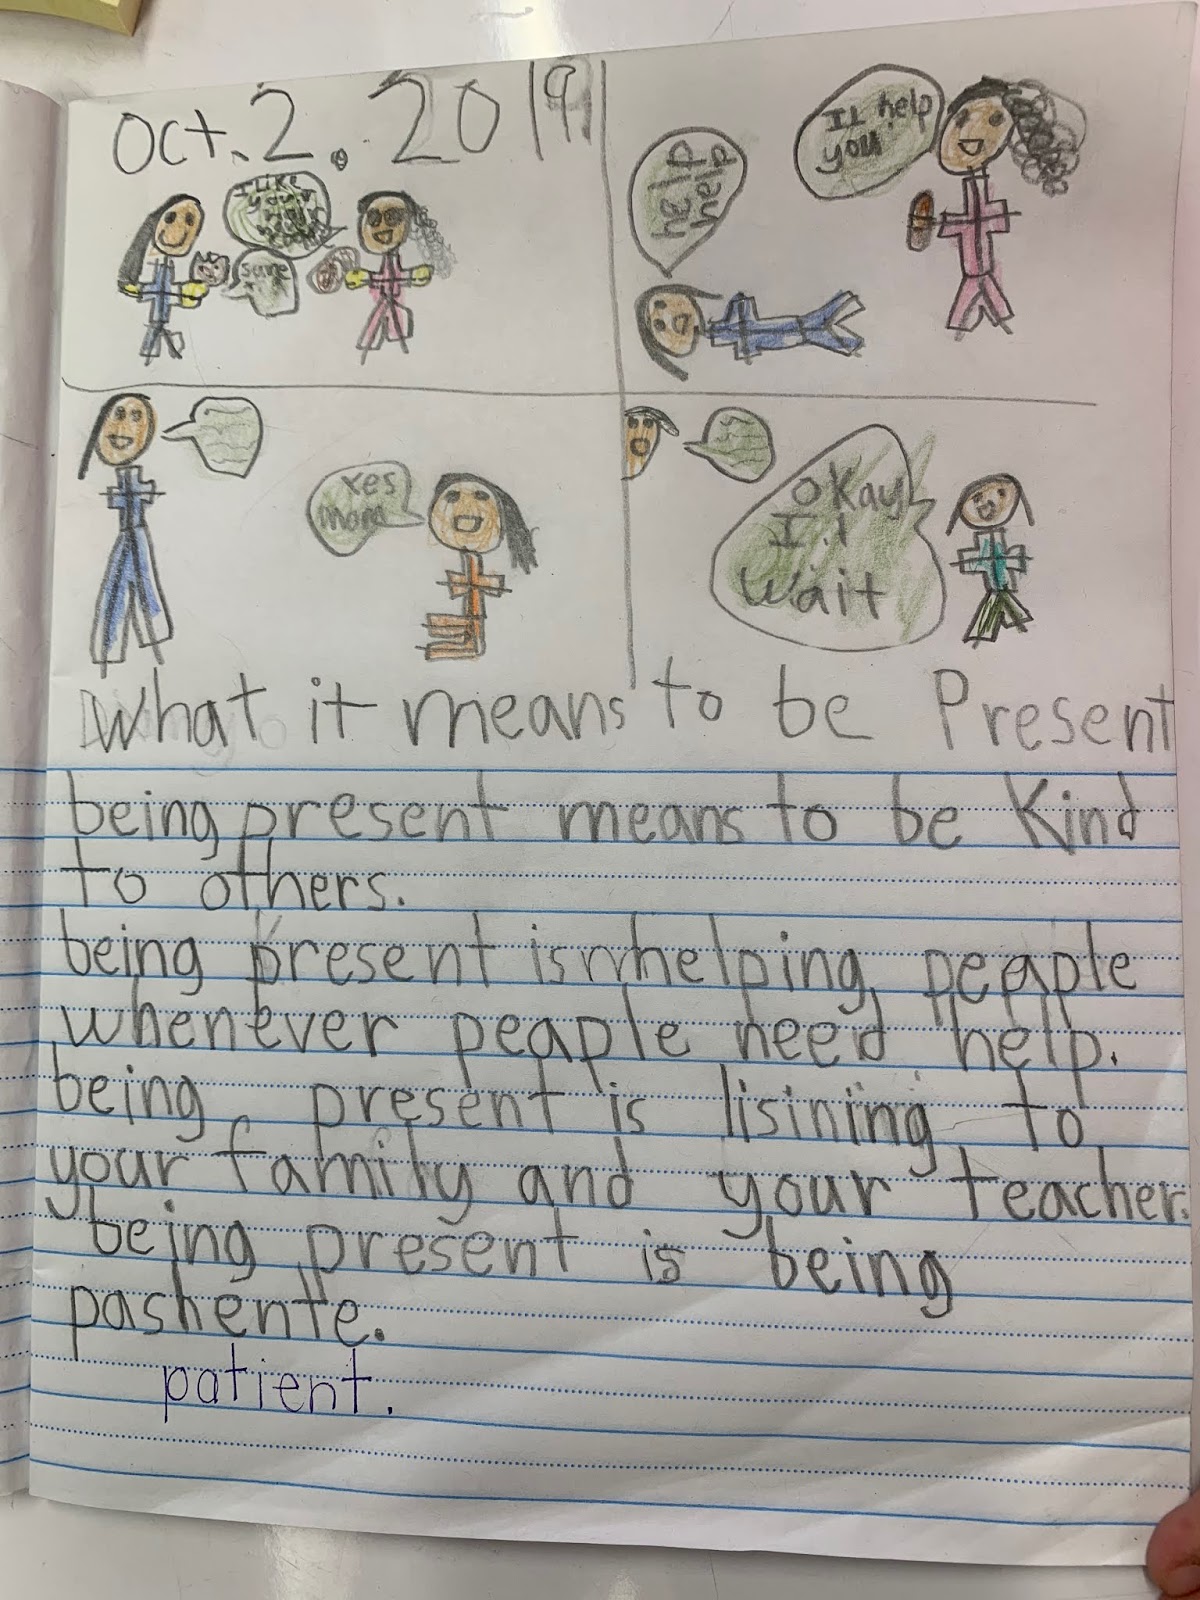 oct. 2. 2019
I like
your
Sure
help
help
Il help
you
Yes
mom
okay
Il
wait
What it means to be Present
being present means to be Kind
to others.
being present is helping peaple
whenever peaple need help.
being present is lisining to
your family and your teacher.
being present is being
pashente.
patient.